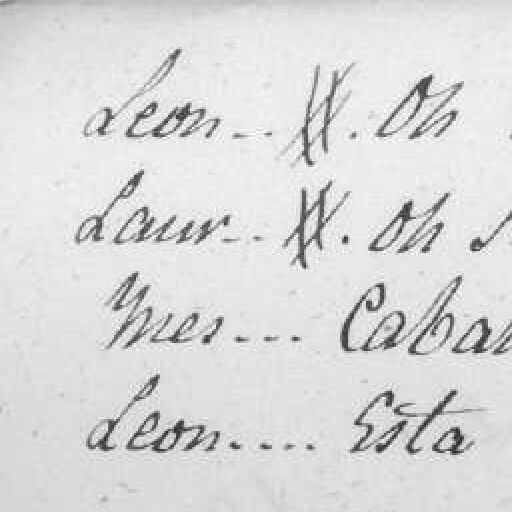 Leon -- . Oh
Laur -- . Oh s
Ynes --- Caba
Leon.... Esta